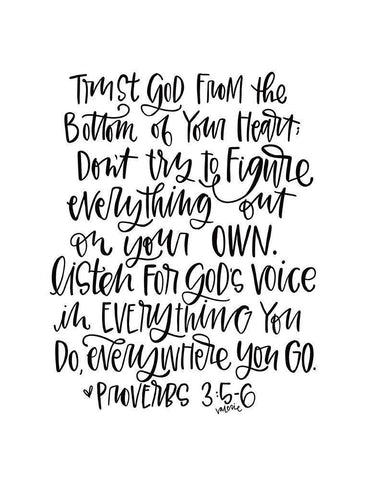 Trust God From the
Bottom of Your Heart;
Don't try to Figure
everything out
on your OWN.
listen For God's Voice
in EVERYTHING You
Do, everywhere you Go.
♥ Proverbs 3:5-6
valerie